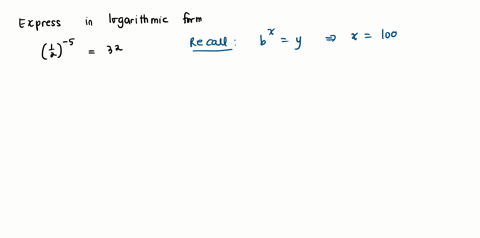 Express in logarithmic form
(1/2)^-5 = 32
Recall: b^x = y ⇒ x = loo